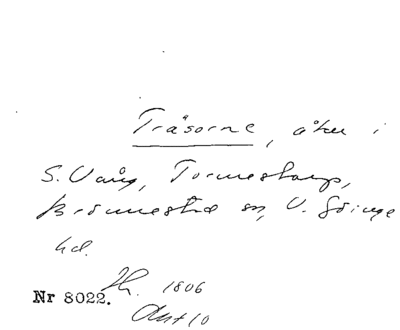 Träsorne, åker i
S. Vång, Tormestorp,
Brönnestad sn, V. Göinge
hd.
Nr 8022. 1806
Akt 10